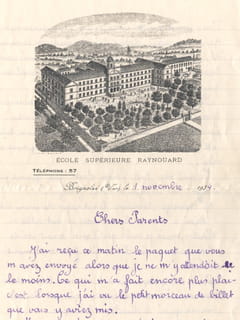 ÉCOLE SUPÉRIEURE RAYNOUARD
TÉLÉPHONE : 57
Brignoles (Var), le 8 novembre 19
Chers Parents
J'ai reçu ce matin le paquet que vous
m'avez envoyé alors que je ne m'y attendait
le moins. Ce qui m'a fait encore plus plai-
c'est lorsque j'ai vu le petit morceau de billet
que vous y aviez mis.